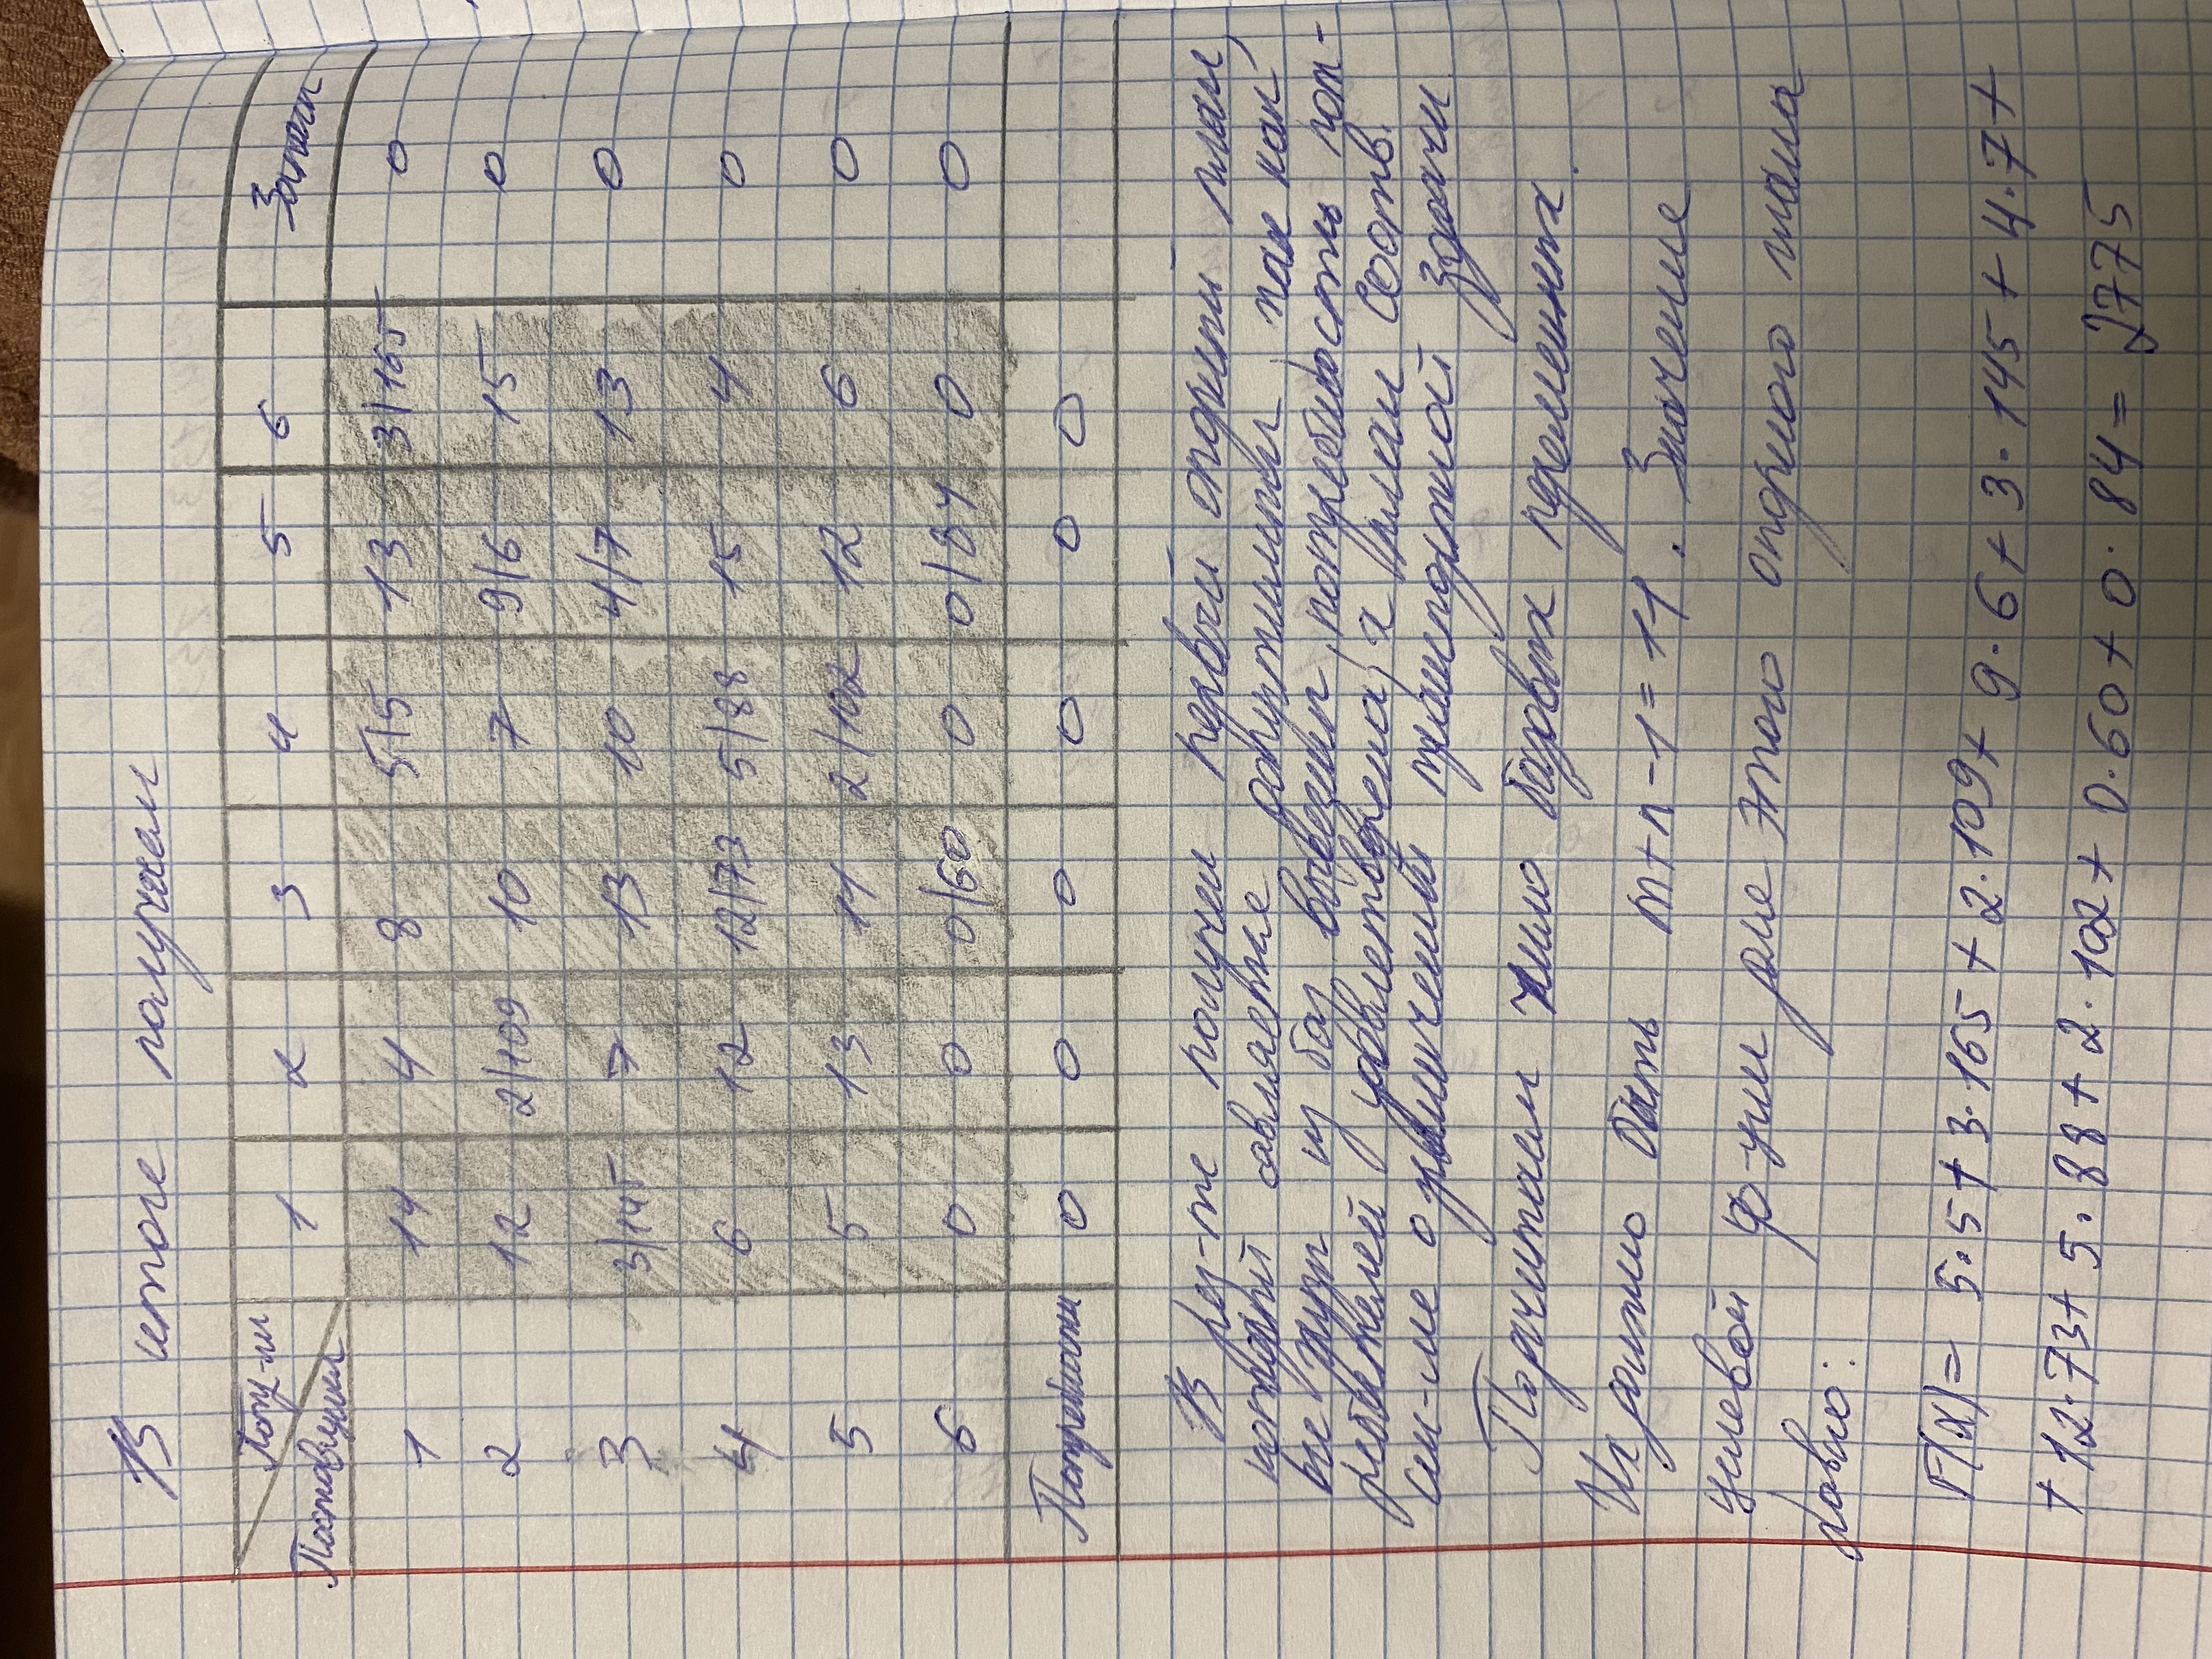 В итоге получаем
Потр-ли
Поставщики 1 2 3 4 5 6 Запасы
1 14 4 8 5|5 13 3|165 0
2 12 2|109 10 7 9|6 15 0
3 3|145 7 13 10 4|7 13 0
4 6 12 12|73 5|88 15 4 0
5 5 13 11 2|102 12 6 0
6 0 0 0|60 0 0|84 0 0
Потребности 0 0 0 0 0 0
В рез-те получен первый опорный план,
который является допустимым, так как
все грузы из баз вывезены, потребность пот-
ребителей удовлетворена, а план соотв.
сис-ме ограничений транспортной задачи
Подсчитаем число базовых переменных.
Их должно быть m+n-1=11. Значение
целевой ф-ции для этого опорного плана
равно:
F(x)= 5·5+3·165+2·109+9·6+3·145+4·7+
+12·73+5·88+2·102+0·60+0·84=2775